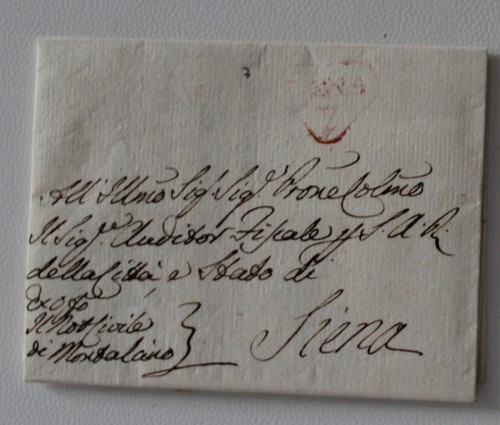 All' Illmo Sig.r Sig.r Prone Colmo
Il Sig.r Auditor Fiscale p S. A. R.
della Città e Stato di
Siena
Ex Offo
Il Not Civile
di Montalcino